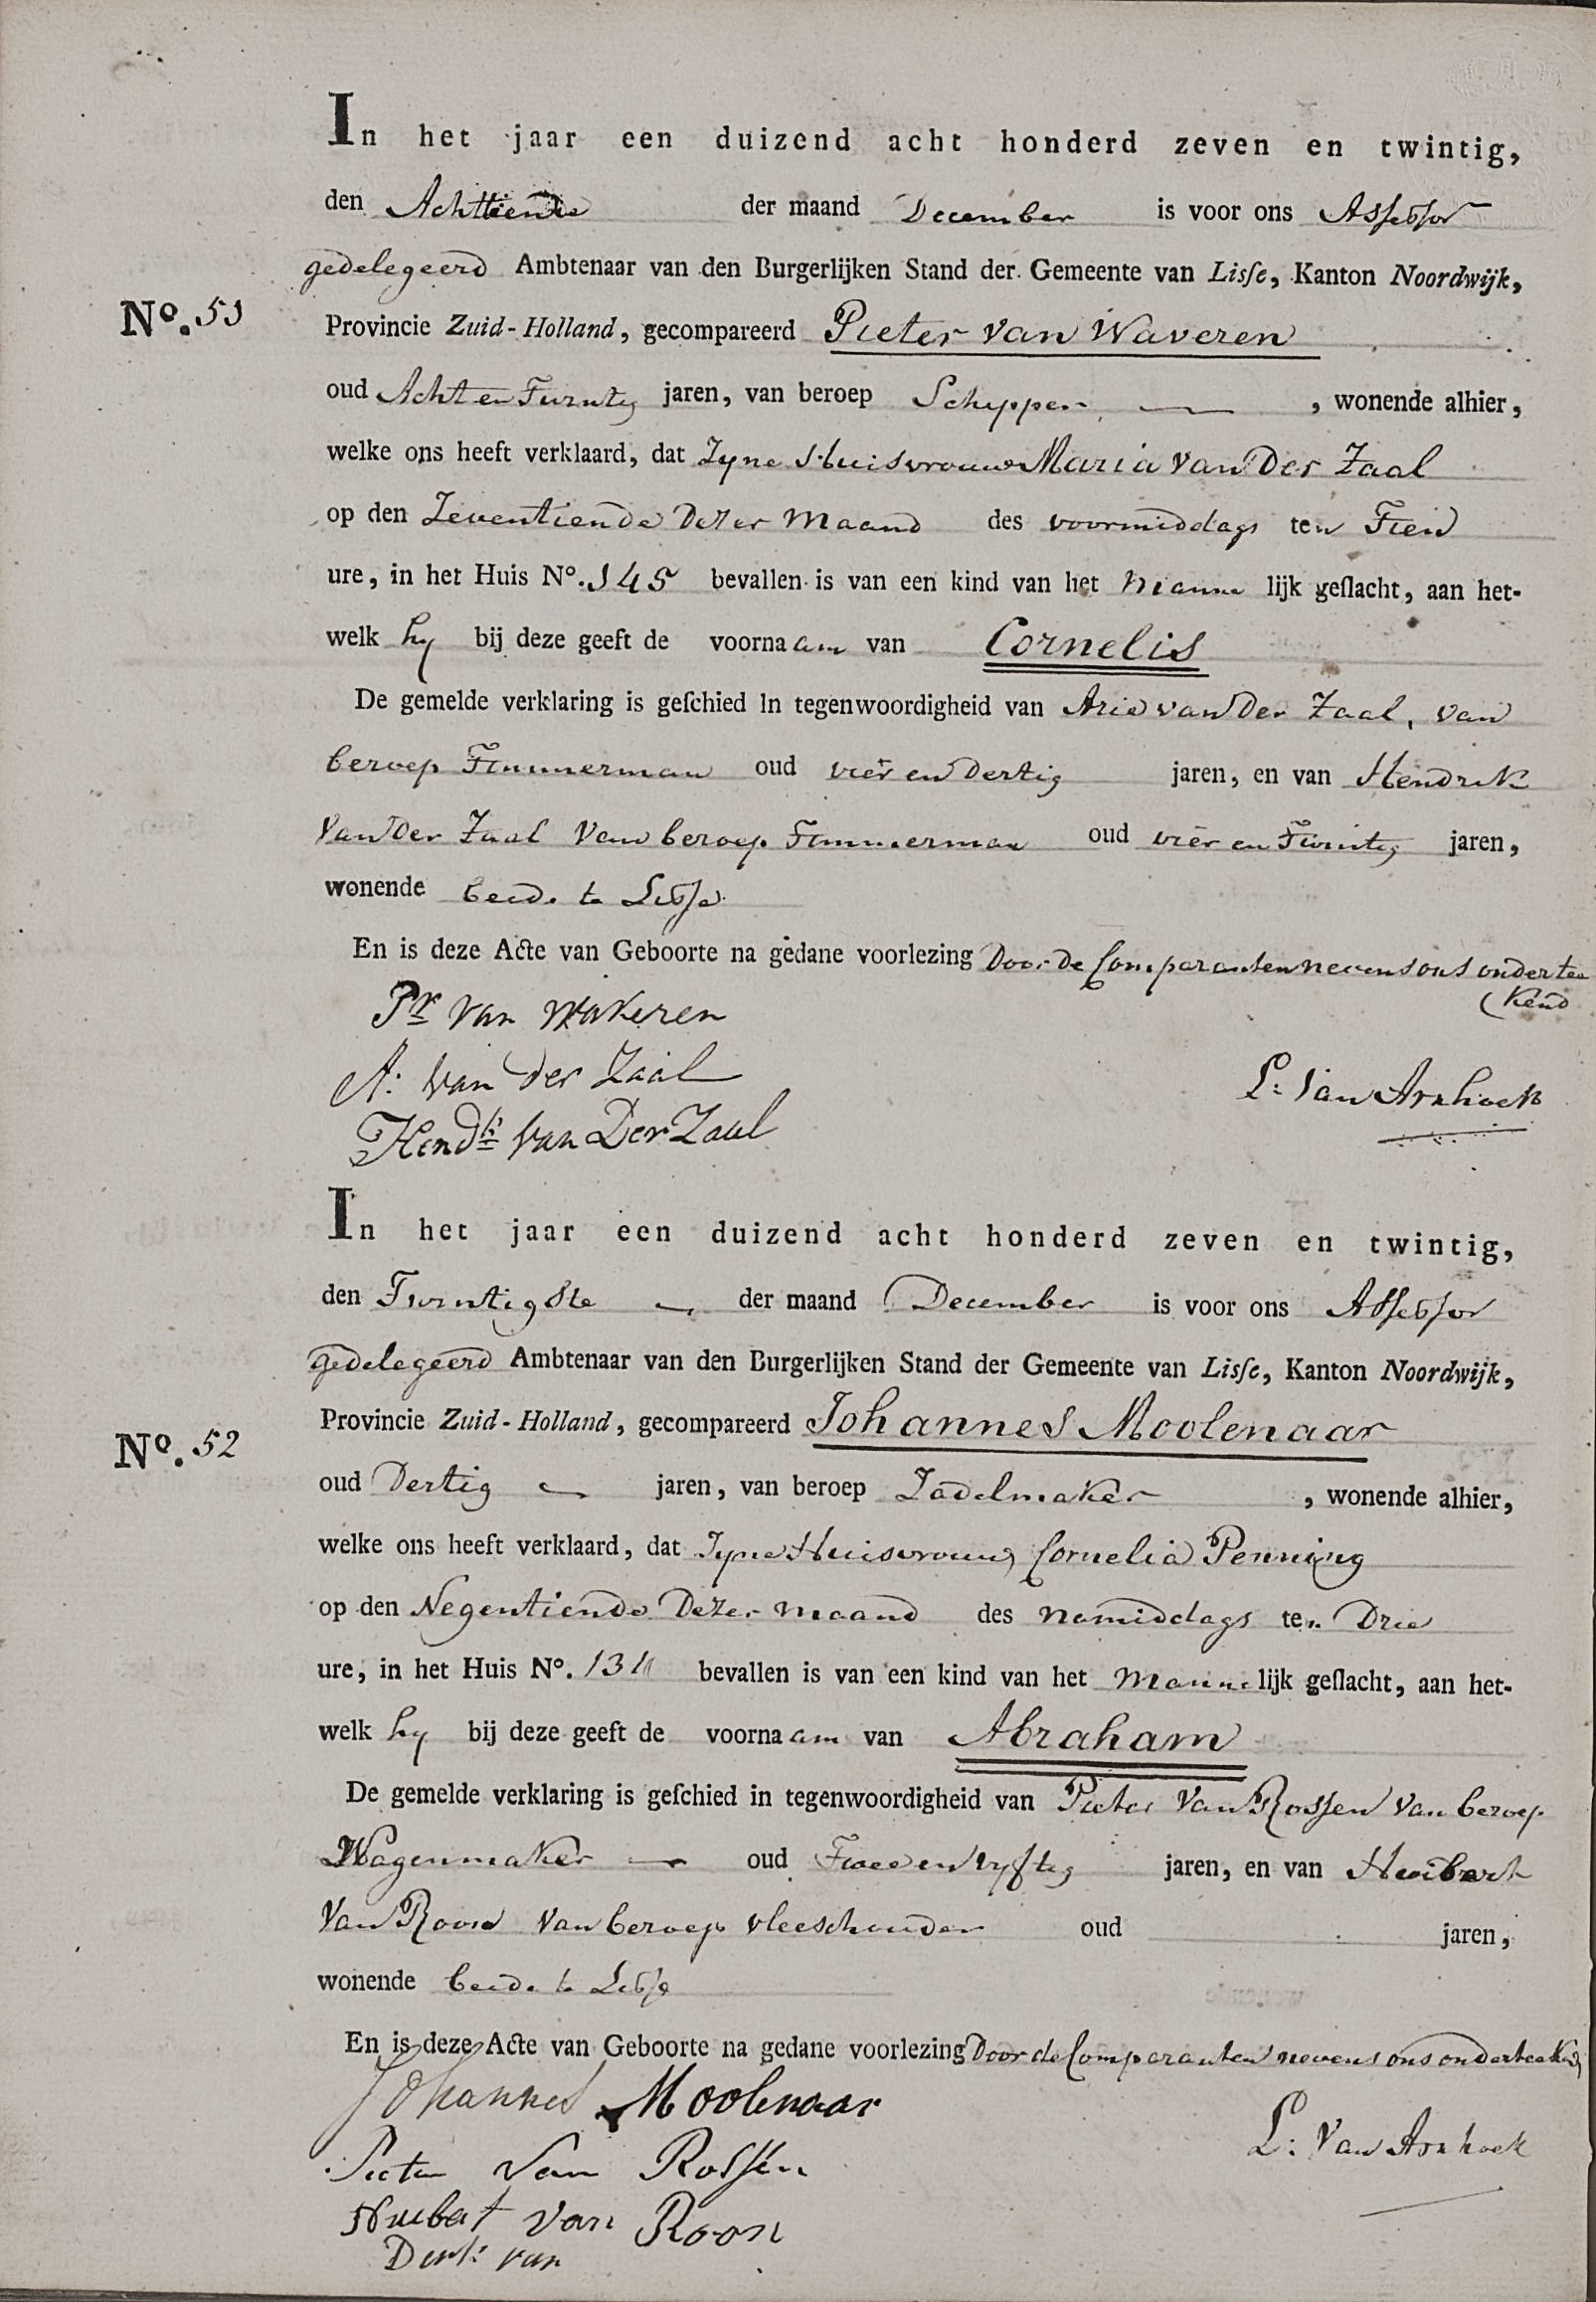 In het jaar een duizend acht honderd zeven en twintig,
den Achttiende der maand December is voor ons Assessor
gedelegeerd Ambtenaar van den Burgerlijken Stand der Gemeente van Lisſe, Kanton Noordwijk,
No. 51
Provincie Zuid-Holland, gecompareerd Pieter van Waveren
oud Acht en Twintig jaren, van beroep Schipper , wonende alhier,
welke ons heeft verklaard, dat Zyne Huisvrouw Maria van Der Zaal
op den Zeventiende Dezer Maand des voormiddags ten Tien
ure, in het Huis No. 145 bevallen is van een kind van het Manne lijk geſlacht, aan het-
welk hy bij deze geeft de voornaam van Cornelis
De gemelde verklaring is geſchied In tegenwoordigheid van Arie van Der Zaal, van
beroep Timmerman oud vier en Dertig jaren, en van Hendrik
Van Der Zaal Van beroep Timmerman oud vier en Twintig jaren,
wonende beide te Lisse
En is deze Acte van Geboorte na gedane voorlezing Door de Comparanten nevens ons ondertee
kend
Pr van Waveren
A: van der Zaal
L: Van Arnhoek
Hendk van Der Zaal
In het jaar een duizend acht honderd zeven en twintig,
den Twintigste der maand December is voor ons Assessor
gedelegeerd Ambtenaar van den Burgerlijken Stand der Gemeente van Lisſe, Kanton Noordwijk,
Provincie Zuid-Holland, gecompareerd Johannes Moolenaar
No. 52
oud Dertig jaren, van beroep Zadelmaker , wonende alhier,
welke ons heeft verklaard, dat Zyne Huisvrouw Cornelia Penning
op den Negentiende Dezer maand des namiddags ten Drie
ure, in het Huis No. bevallen is van een kind van het Manne lijk geſlacht, aan het-
welk hy bij deze geeft de voornaam van Abraham
De gemelde verklaring is geſchied in tegenwoordigheid van Pieter Van Rossen Van beroep
Wagenmaker oud Twee en vyftig jaren, en van Huibert
Van Roon Van beroep vleeschouder oud jaren,
wonende beide te Lisse
En is deze Acte van Geboorte na gedane voorlezing Door de Comparanten nevens ons onderteekend
Johannes Moolenaar
L: Van Arnhoek
Pieter van Rossen
Huibert van Roon
Dirk: van